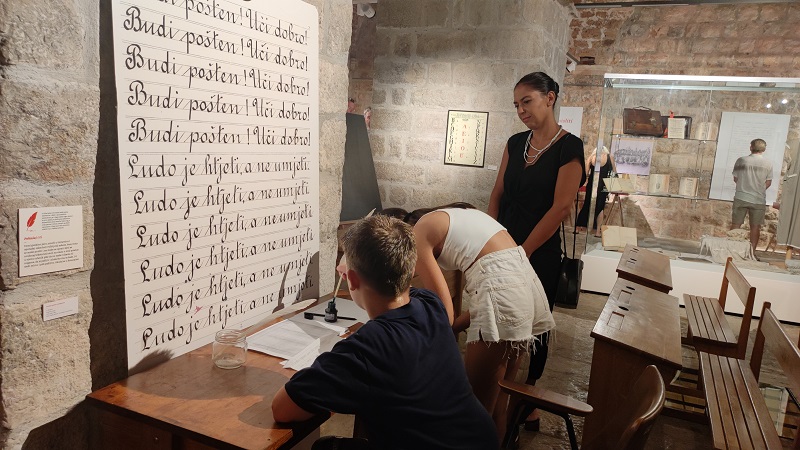 Budi pošten! Uči dobro!
Budi pošten! Uči dobro!
Budi pošten! Uči dobro!
Budi pošten! Uči dobro!
Ludo je htjeti, a ne umjeti.
Ludo je htjeti, a ne umjeti.
Ludo je htjeti, a ne umjeti.
Ludo je htjeti, a ne umjeti.
Ludo je htjeti, a ne umjeti.
Ludo je htjeti, a ne umjeti.